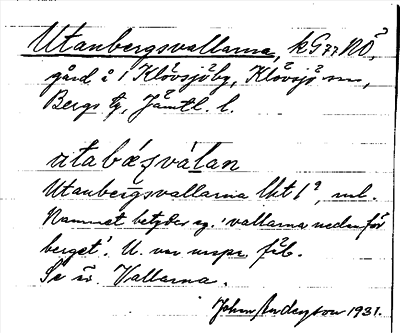 Utanbergsvallarna, k577NÖ,
gård å 1 Klövsjöby, Klövsjö sn,
Bergs tg, Jämtl. l.
utabæʒvàlan
Utanbergsvallarna Ukt 1², ml.
Namnet betyder eg. 'vallarna nedanför
berget'. U. var urspr. fäb.
Se äv. Vallarna.
John Anderzton 1931.